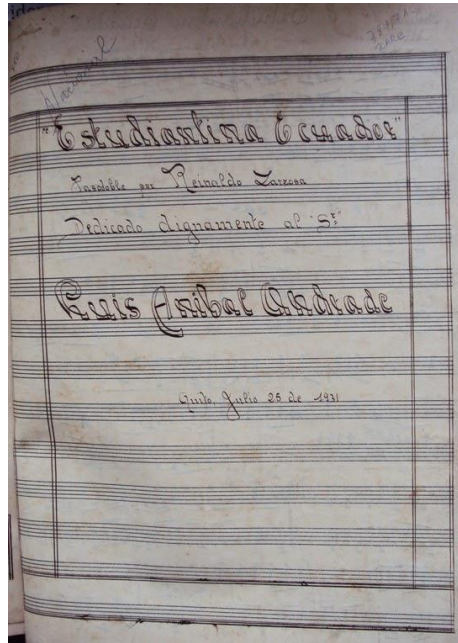 Nacional
"Estudiantina Ecuador"
Pasodoble por Reinaldo Zarzosa
Dedicado dignamente al "Sr"
Luis Anibal Andrade
Quito, Julio 25 de 1931